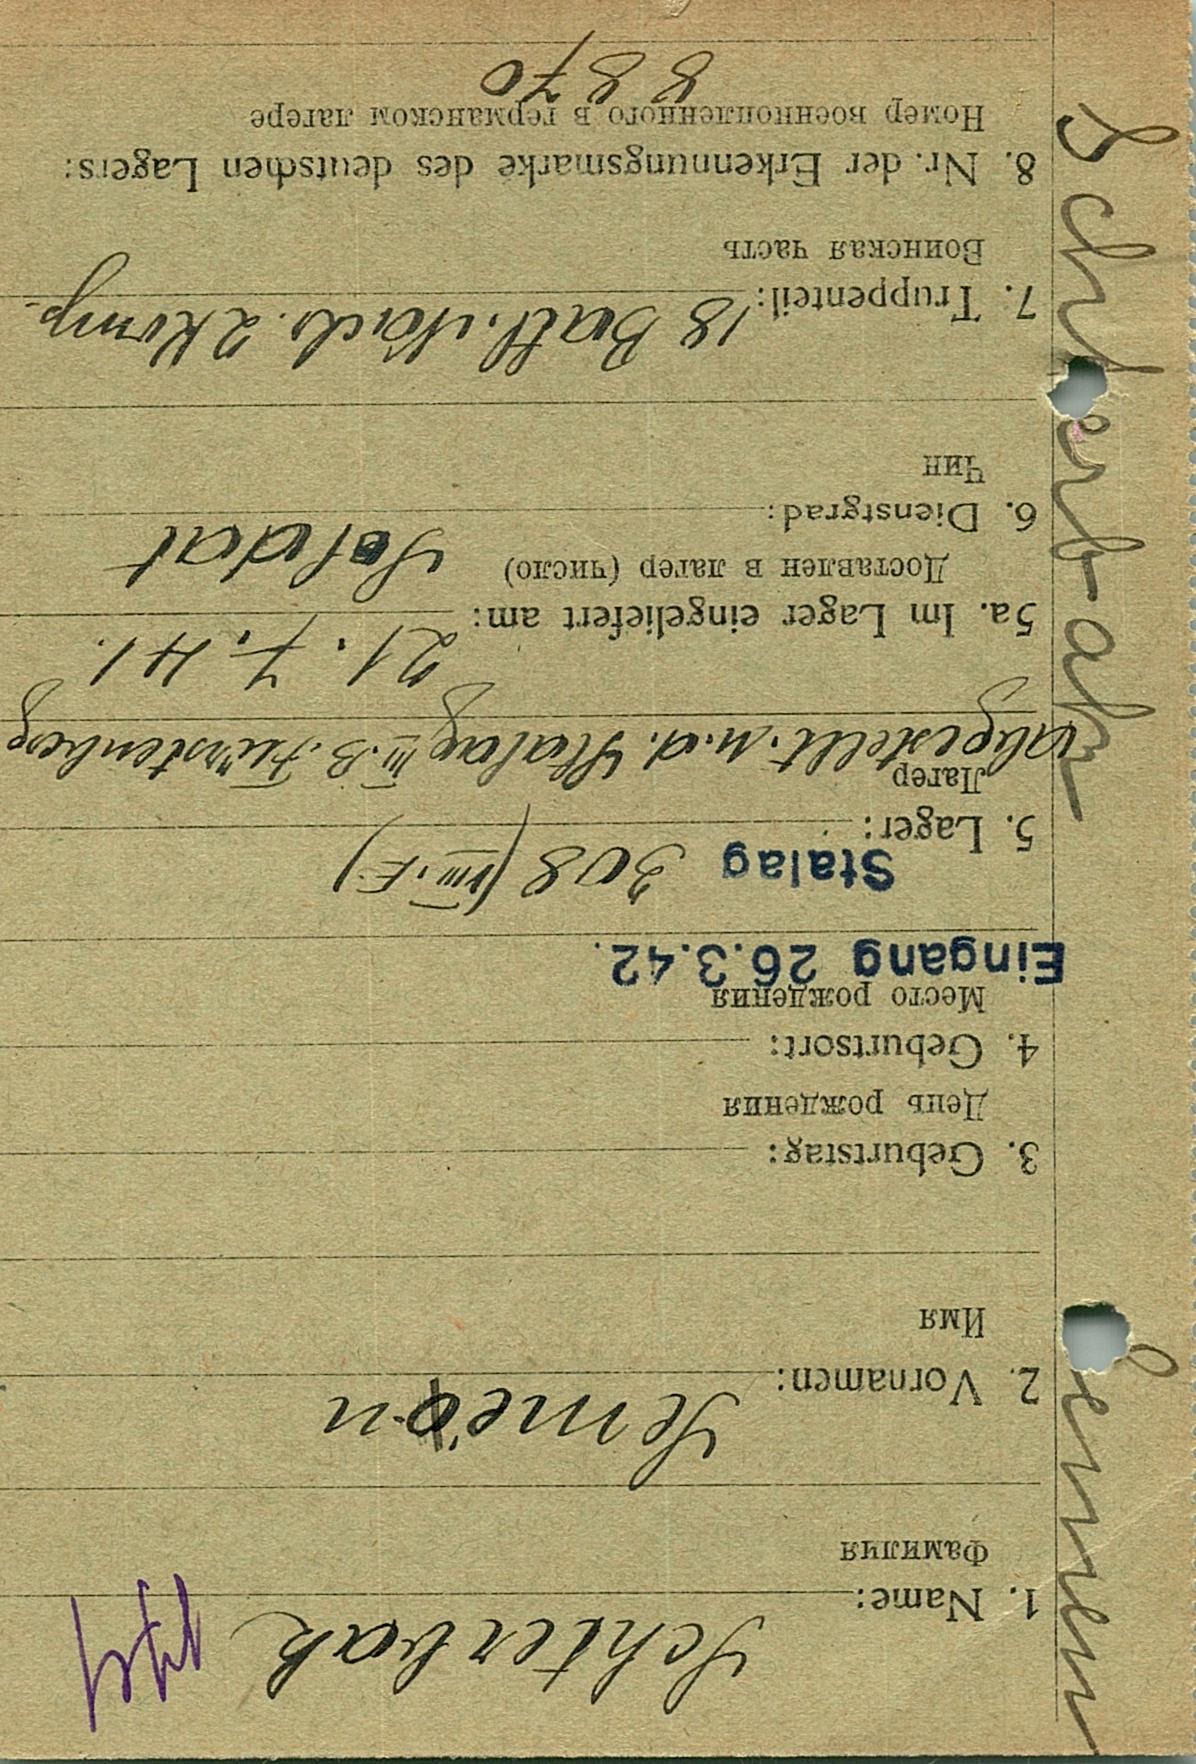 1. Name: Schterbak
Фамилия
2. Vornamen: Semeon
Имя
3. Geburtstag:
День рождения
4. Geburtsort:
Место рождения
Eingang 26.3.42.
Stalag 308 (VIII.E)
5. Lager:
Лагер
abgestellt. n. d. Stalag III.B. Fürstenberg
21. 7. 41.
5a. Im Lager eingeliefert am:
Доставлен в лагер (число)
Soldat
6. Dienstgrad:
Чин
7. Truppenteil: 18 Batl. Nach. 2 Komp.
Воинская часть
8. Nr. der Erkennungsmarke des deutschen Lagers:
Номер военнопленного в германском лагере
8870
Semen